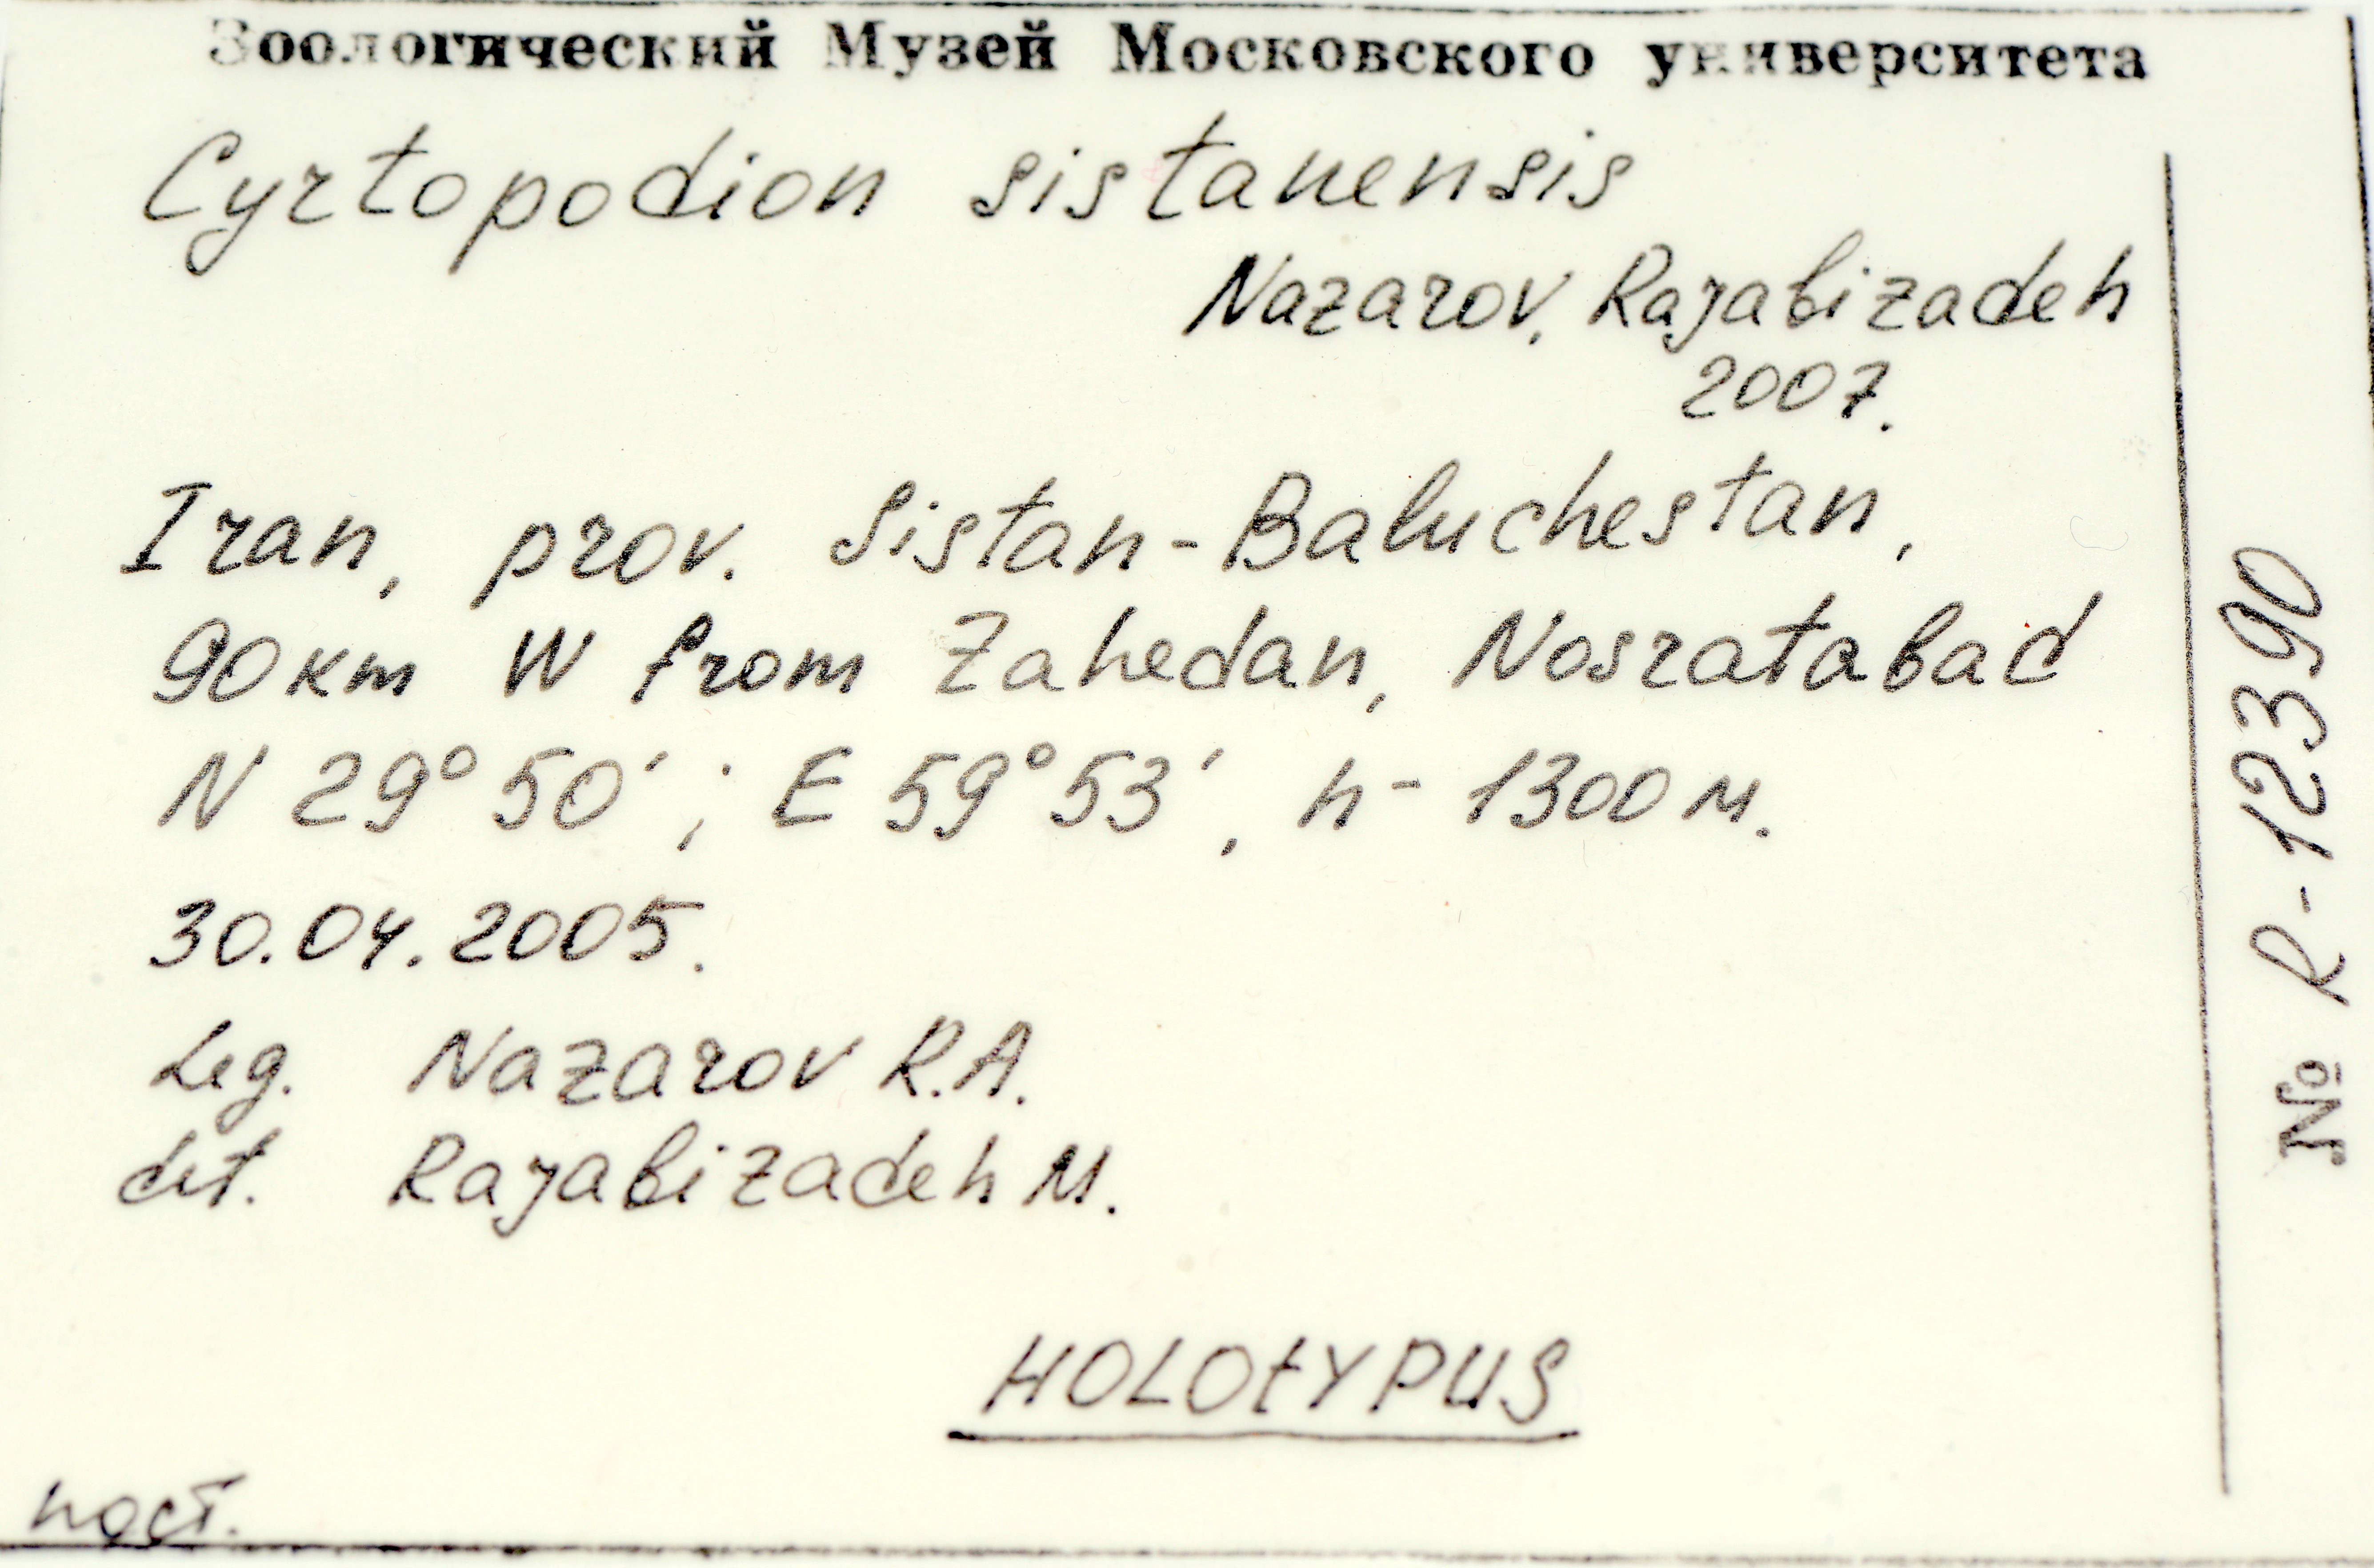 Зоологический Музей Московского университета
Cyrtopodion sistanensis
Nazarov, Rajabizadeh
2007.
Iran, prov. Sistan-Baluchestan,
90 км W from Zahedan, Nosratabad
N 29° 50′ ; E 59° 53′, h - 1300 м.
30.04.2005.
Leg. Nazarov R.A.
det. Rajabizadeh M.
HOLOtYPUS
пост.
№ R-12390